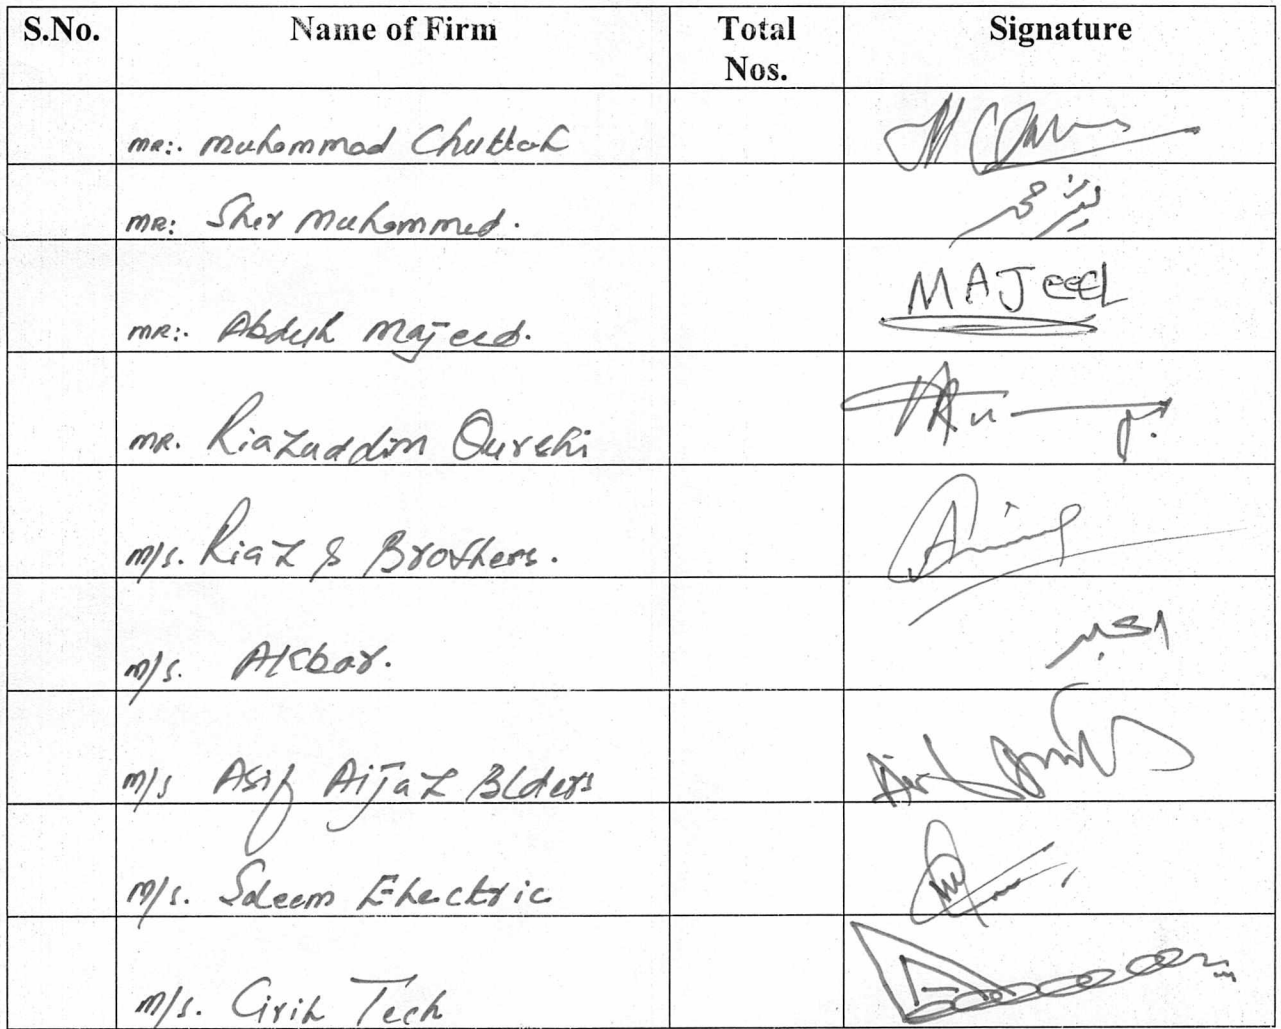 S.No. Name of Firm Total Nos. Signature
MR:. Muhammad Chuttal
MR: Sher Muhammed. شیر محمد
MR:. Abdul Majeed. MAJeed
MR. Riazuddin Qureshi
M/S. Riaz & Brothers.
M/S. Akbar. اکبر
M/S Asif Aijaz Blders
M/S. Saleem Electric
M/S. Civil Tech